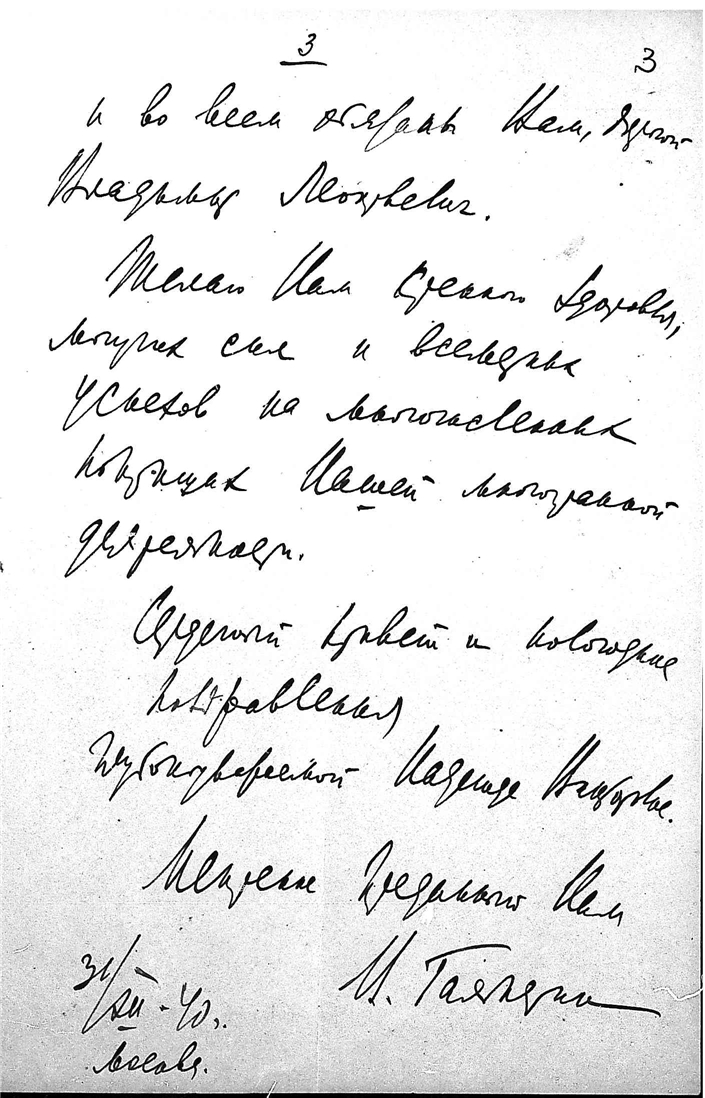 3
3
и во всем обязаны Вам, дорогой
Владимир Яковлевич.
Желаю Вам крепкого здоровья,
могучих сил и всемерных
успехов на многочисленных
поприщах Вашей многогранной
деятельности.
Сердечный привет и новогодние
поздравления
глубокоуважаемой Надежде
Искренне преданный Вам
И.
31/XII - 40.
Москва.